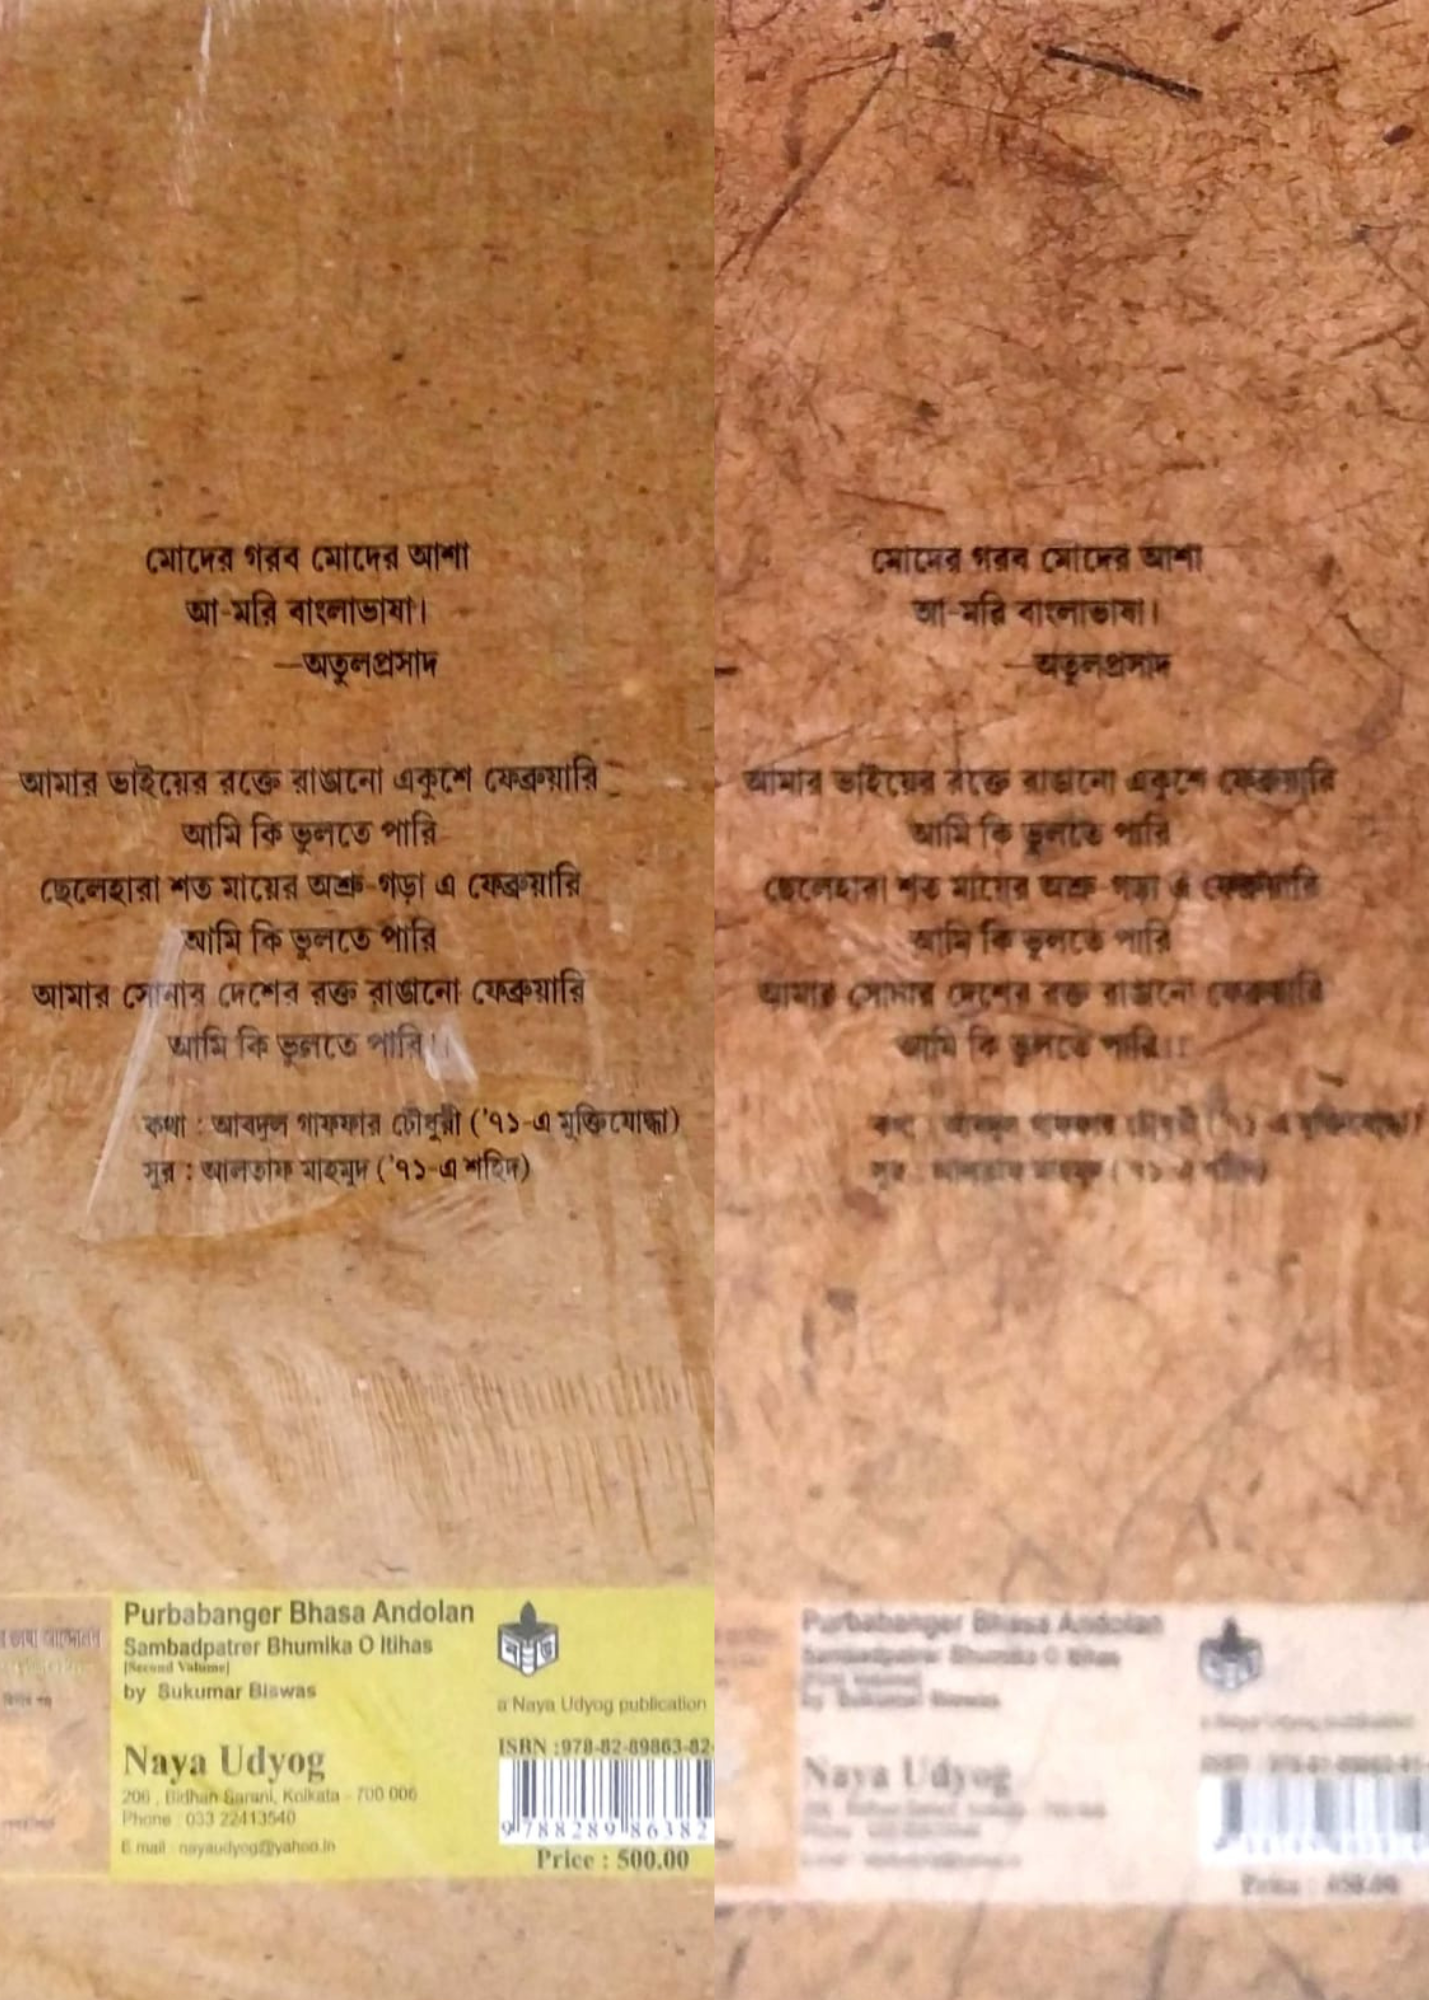 মোদের গরব মোদের আশা
আ-মরি বাংলাভাষা।
—অতুলপ্রসাদ
আমার ভাইয়ের রক্তে রাঙানো একুশে ফেব্রুয়ারি
আমি কি ভুলতে পারি
ছেলেহারা শত মায়ের অশ্রু-গড়া এ ফেব্রুয়ারি
আমি কি ভুলতে পারি
আমার সোনার দেশের রক্ত রাঙানো ফেব্রুয়ারি
আমি কি ভুলতে পারি।।
কথা : আবদুল গাফফার চৌধুরী ('৭১-এ মুক্তিযোদ্ধা)
সুর : আলতাফ মাহমুদ ('৭১-এ শহিদ)
Purbabanger Bhasa Andolan
Sambadpatrer Bhumika O Itihas
[Second Volume]
by Sukumar Biswas
Naya Udyog
206, Bidhan Sarani, Kolkata - 700 006
Phone : 033 22413540
E mail : nayaudyog@yahoo.in
a Naya Udyog publication
ISBN :978-82-89863-82-
9 788289 86382
Price : 500.00
মোদের গরব মোদের আশা
আ-মরি বাংলাভাষা।
—অতুলপ্রসাদ
আমার ভাইয়ের রক্তে রাঙানো একুশে ফেব্রুয়ারি
আমি কি ভুলতে পারি
ছেলেহারা শত মায়ের অশ্রু-গড়া এ ফেব্রুয়ারি
আমি কি ভুলতে পারি
আমার সোনার দেশের রক্ত রাঙানো ফেব্রুয়ারি
আমি কি ভুলতে পারি।।
কথা : আবদুল গাফফার চৌধুরী ('৭১-এ মুক্তিযোদ্ধা)
সুর : আলতাফ মাহমুদ ('৭১-এ শহিদ)
Purbabanger Bhasa Andolan
Sambadpatrer Bhumika O Itihas
by Sukumar Biswas
Naya Udyog
a Naya Udyog publication